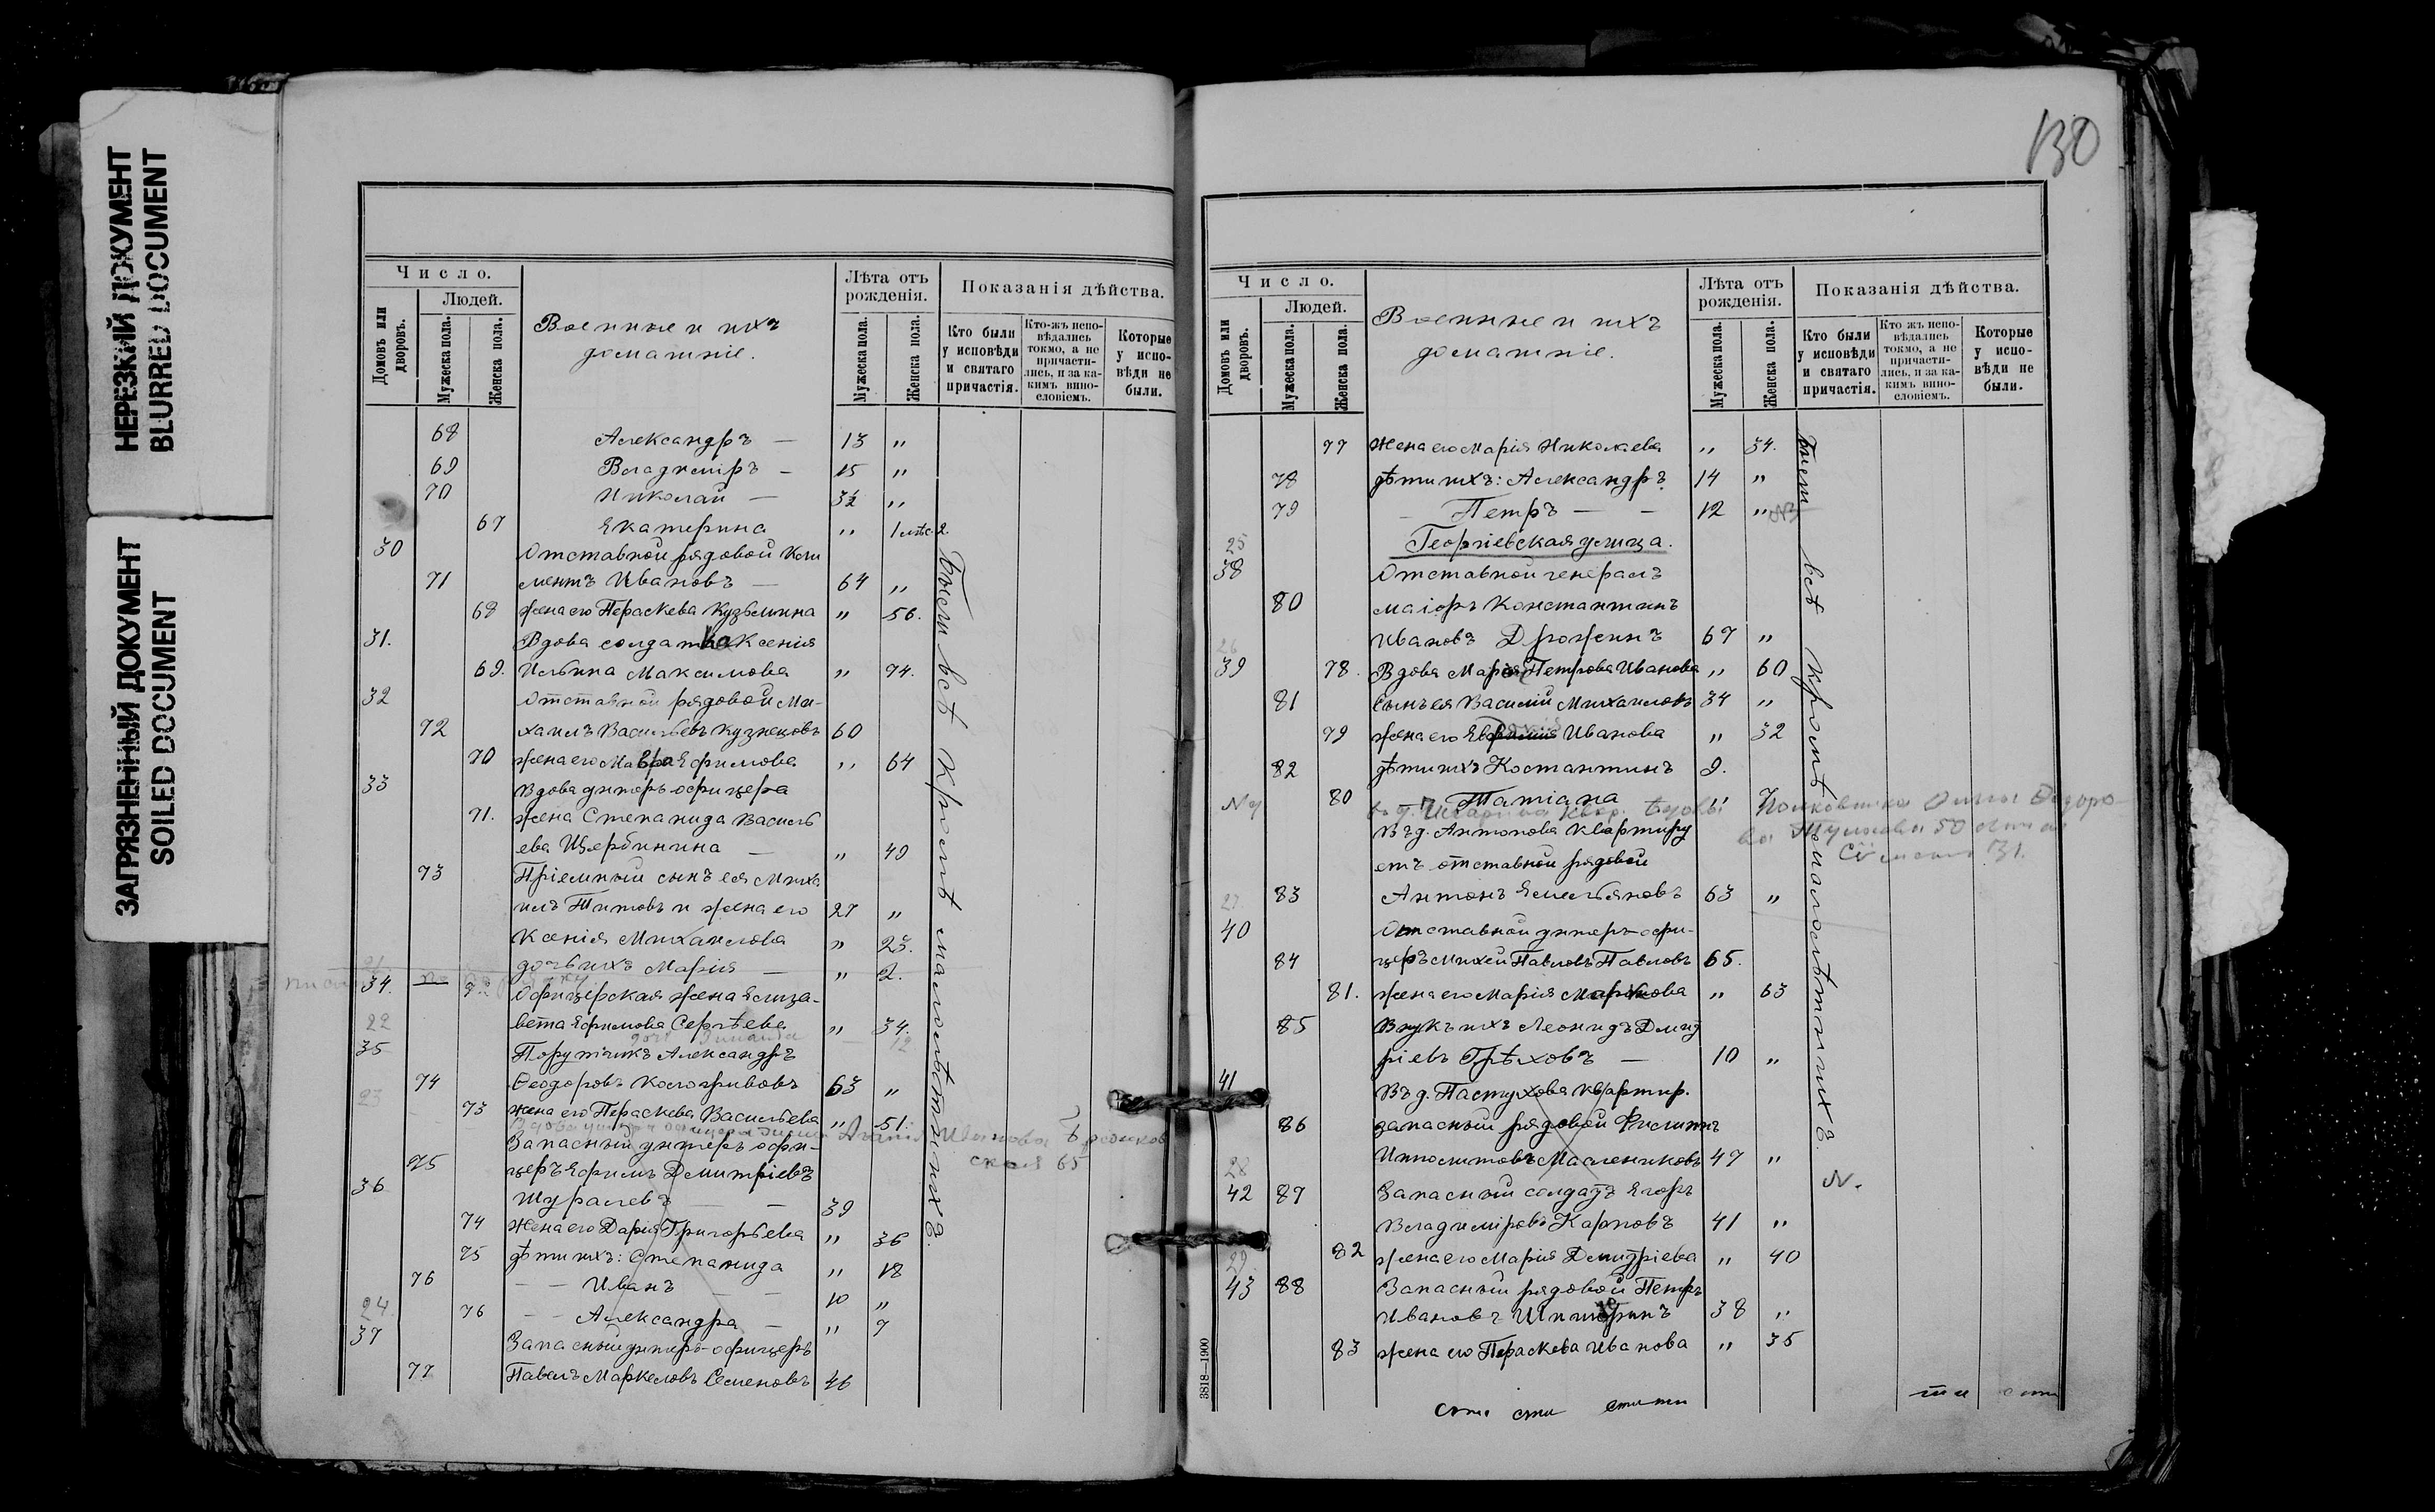 НЕРЕЗКИЙ ДОКУМЕНТ
BLURRED DOCUMENT
ЗАГРЯЗНЕННЫЙ ДОКУМЕНТ
SOILED DOCUMENT
Число.
Людей.
Домовъ или дворовъ.
Мужеска пола.
Женска пола.
Военные и ихъ
домашніе.
Лѣта отъ рожденія.
Мужеска пола.
Женска пола.
Показанія дѣйства.
Кто были у исповѣди и святаго причастія.
Кто-жъ исповѣдались токмо, а не причастились, и за какимъ винословіемъ.
Которые у исповѣди не были.
68 Александръ — 13 „
69 Владиміръ — 15 „
70 Николай —
67 Екатерина „ 1 мѣс. 2
30 Отставной рядовой Кли
71 ментъ Ивановъ — 64 „
68 жена его Параскева Кузьмина „ 56.
31. Вдова солдатка Ксенія
69. Ильина Максимова „ 74.
32 Отставной рядовой Ми-
72 хаилъ Васильевъ Кузнецовъ 60
70 жена его Мавра Ефимова „ 64
33 Вдова унтеръ офицера
71. жена Степанида Василь
ева Щербинина — „ 49
73 Пріемный сынъ ея Миха
илъ Титовъ и жена его 27 „
Ксенія Михаилова „ 23.
дочь ихъ Марія — „ 2.
21
34. 72 Офицерская жена Елиза-
вета Ефимова Сергѣева „ 34.
22
12
35 Поручикъ Александръ
74 Ѳеодоровъ Кологривовъ 63 „
23
73 жена его Параскева Васильева „ 51.
Вдова унтеръ офицера
65
Запасный унтеръ офи-
75 церъ Ефимъ Димитріевъ
36 Шуралевъ — — 39
74 жена его Дарія Григорьева „ 36
75 дѣти ихъ: Степанида „ 18
76 — — Иванъ — — 10 „
24
76 — — Александра — „ 7
37 Запасный унтеръ-офицеръ
77 Павелъ Маркеловъ Семеновъ 46
Были всѣ кромѣ малолѣтнихъ.
130
Число.
Людей.
Домовъ или дворовъ.
Мужеска пола.
Женска пола.
Военные и ихъ
домашніе.
Лѣта отъ рожденія.
Мужеска пола.
Женска пола.
Показанія дѣйства.
Кто были у исповѣди и святаго причастія.
Кто жъ исповѣдались токмо, а не причастились, и за какимъ винословіемъ.
Которые у исповѣди не были.
77 Жена его Марія Николаева „ 34.
78 дѣти ихъ: Александръ 14 „
79 — Петръ — — 12 „
Георгіевская улица.
25
38 Отставной генералъ
80 маіоръ Константинъ
Ивановъ Дрожжинъ 67 „
26
39 78. Вдова Марія Петрова Иванова „ 60
81 Сынъ ея Василій Михаиловъ 34 „
79 жена его Иванова „ 32
82 дѣти ихъ Костантинъ 9.
80 Татіана „ 7
Въ д. Антонова квартиру
етъ отставной рядовой
83 Антонъ Емельяновъ 63 „
27
40 Отставной унтеръ-офи-
84 церъ Михей Павловъ Павловъ 65.
81. жена его Марія Маркова „ 63
85 Внукъ ихъ Леонидъ Дмит
ріевъ Грѣховъ — 10 „
41 Въ д. Пастухова квартир.
86 запасный рядовой Филиппъ
Ипполитовъ Маслениковъ 47 „
28
42 87 Запасный солдатъ Егоръ
Владиміровъ Карповъ 41 „
82 жена его Марія Димитріева „ 40
29
43 88 Запасный рядовой Петръ
Ивановъ 38 „
83 жена его Параскева Иванова „ 35
Были всѣ кромѣ малолѣтнихъ.
N.
3818—1900